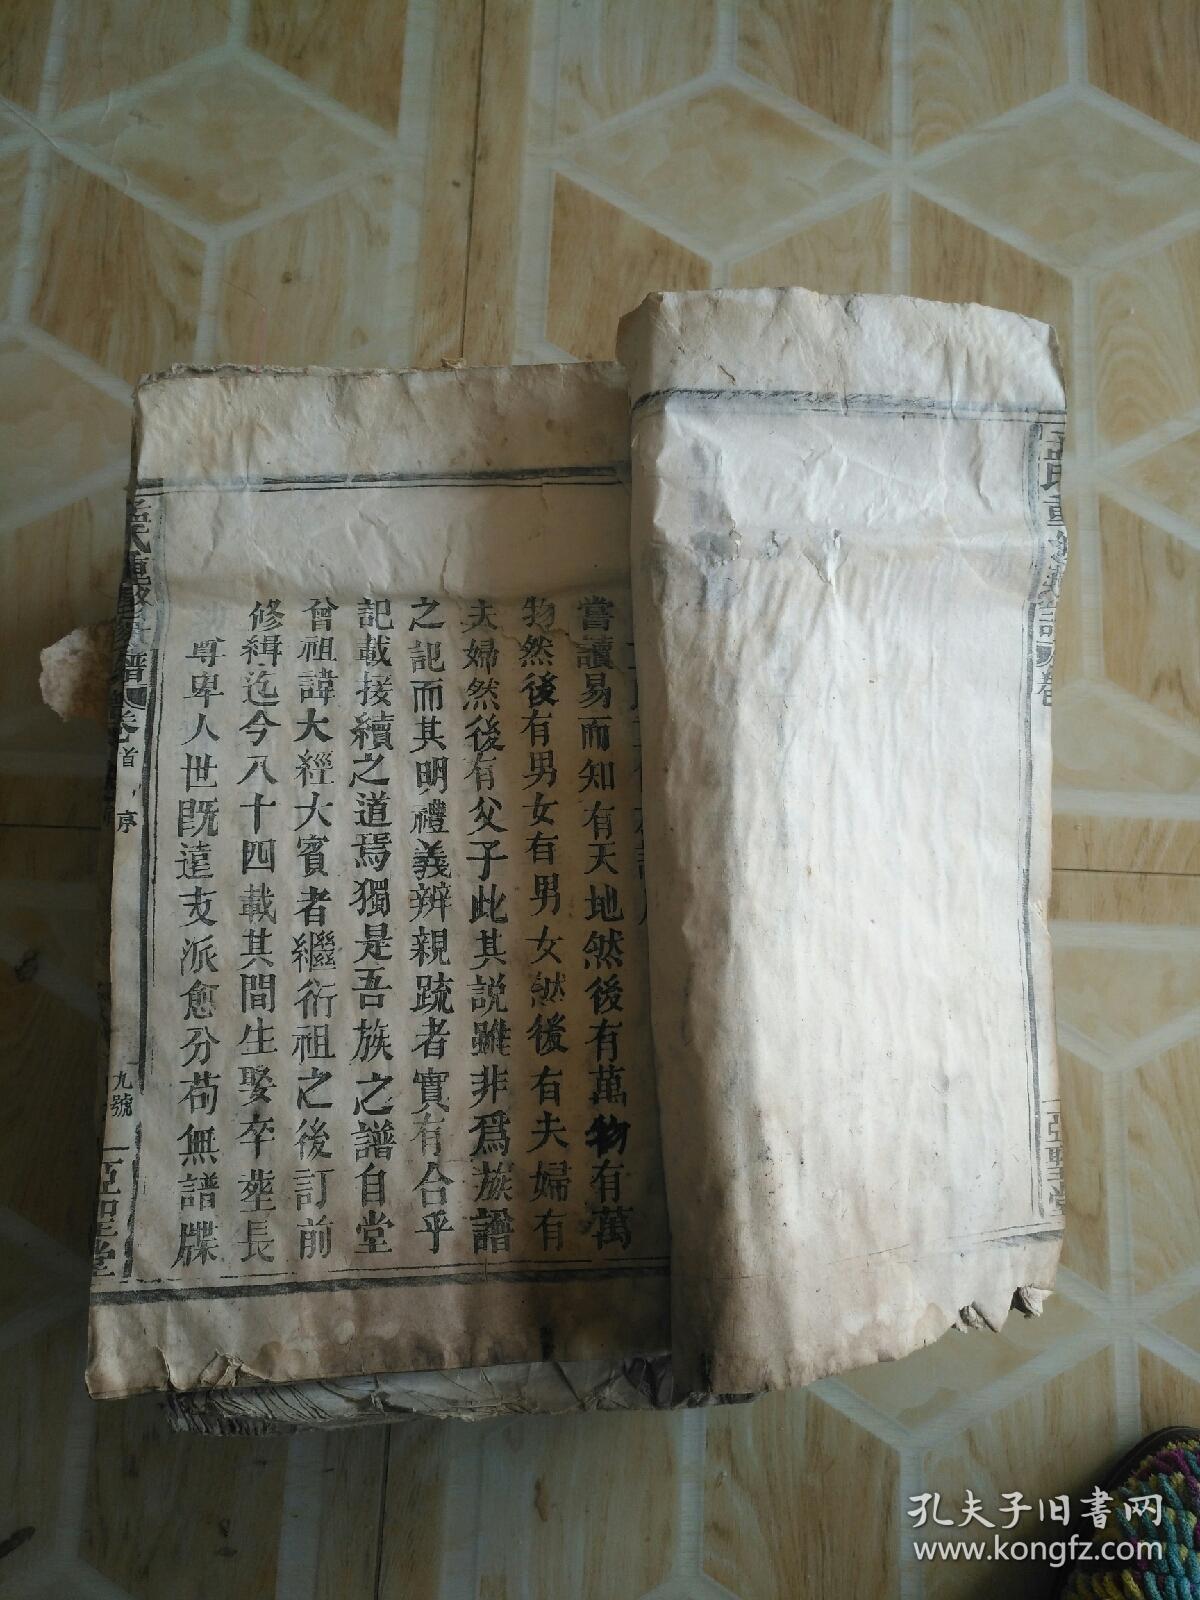 嘗讀易而知有天地然後有萬物有萬
物然後有男女有男女然後有夫婦有
夫婦然後有父子此其説雖非爲族譜
之記而其明禮義辨親疏者實有合乎
記載接續之道焉獨是吾族之譜自堂
曾祖諱大經大賓者繼衍祖之後訂前
修緝迄今八十四載其間生娶卒塟長
尊卑人世既遠支派愈分苟無譜牒
孟氏重修家譜
卷首
序
九號
亞聖堂
孟氏重修
亞聖堂
孔夫子旧書网
www.kongfz.com